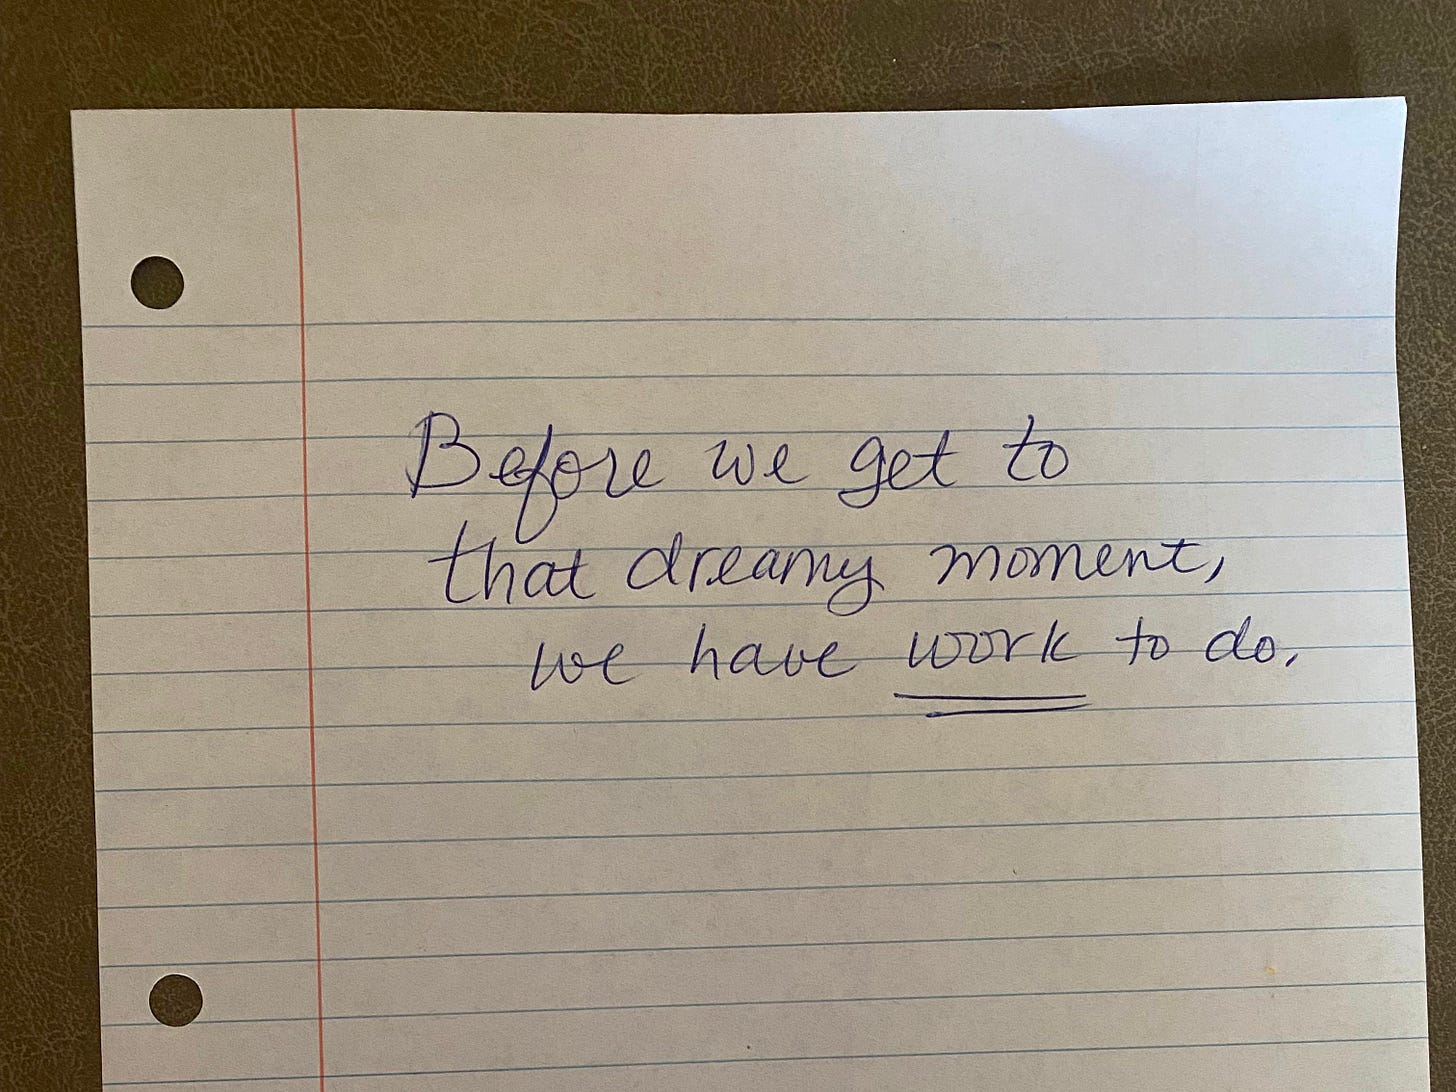 Before we get to
that dreamy moment,
we have work to do.